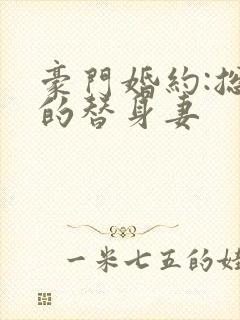 豪門婚約:
的替身妻
一米七五的